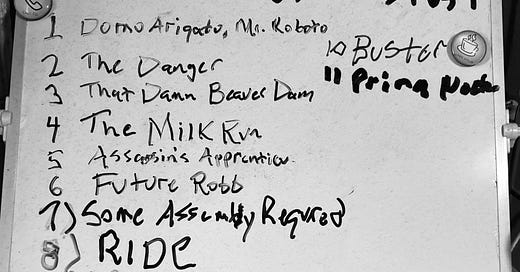 1 Domo Arigato, Mr. Roboto
2 The Danger
3 That Damn Beaver Dam
4 The Milk Run
5 Assassin's Apprentice
6 Future Robb
7) Some Assembly Required
8) RIDE
10 Buster
11 Prima